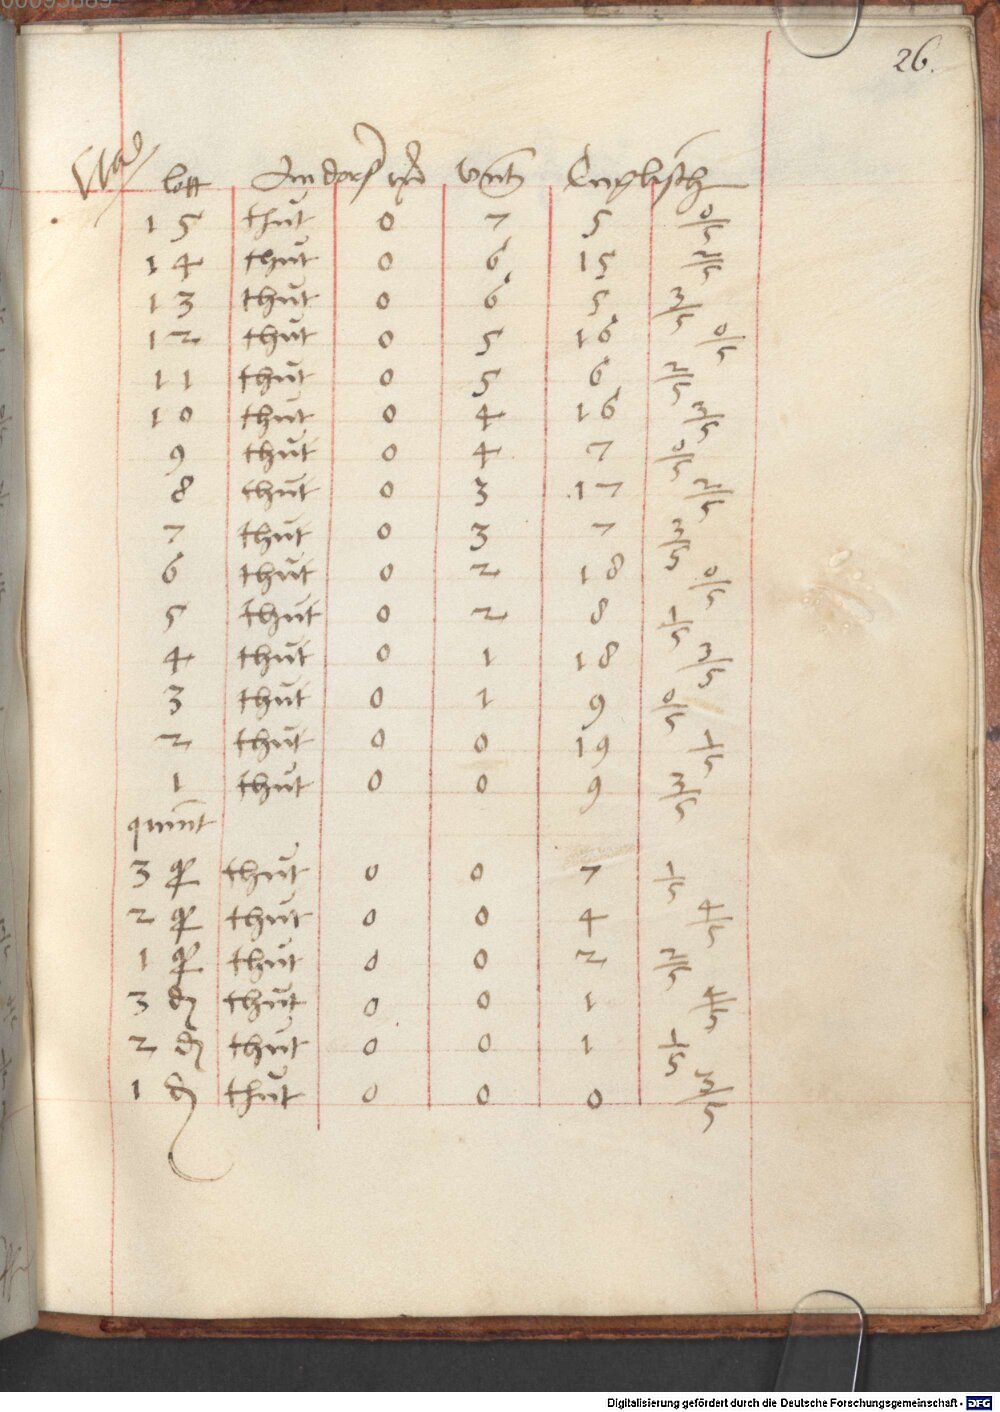 00093889
26.
lott Andorf unt Englisch
15 thut 0 7 5 0/5
14 thut 0 6 15 2/5
13 thut 0 6 5 3/5
12 thut 0 5 16 0/5
11 thut 0 5 6 2/5
10 thut 0 4 16 3/5
9 thut 0 4 7 0/5
8 thut 0 3 17 2/5
7 thut 0 3 7 3/5
6 thut 0 2 18 0/5
5 thut 0 2 8 1/5
4 thut 0 1 18 3/5
3 thut 0 1 9 0/5
2 thut 0 0 19 1/5
1 thut 0 0 9 3/5
quint
3 q thut 0 0 7 1/5
2 q thut 0 0 4 4/5
1 q thut 0 0 2 2/5
3 d thut 0 0 1 4/5
2 d thut 0 0 1 1/5
1 d thut 0 0 0 3/5
Digitalisierung gefördert durch die Deutsche Forschungsgemeinschaft - DFG